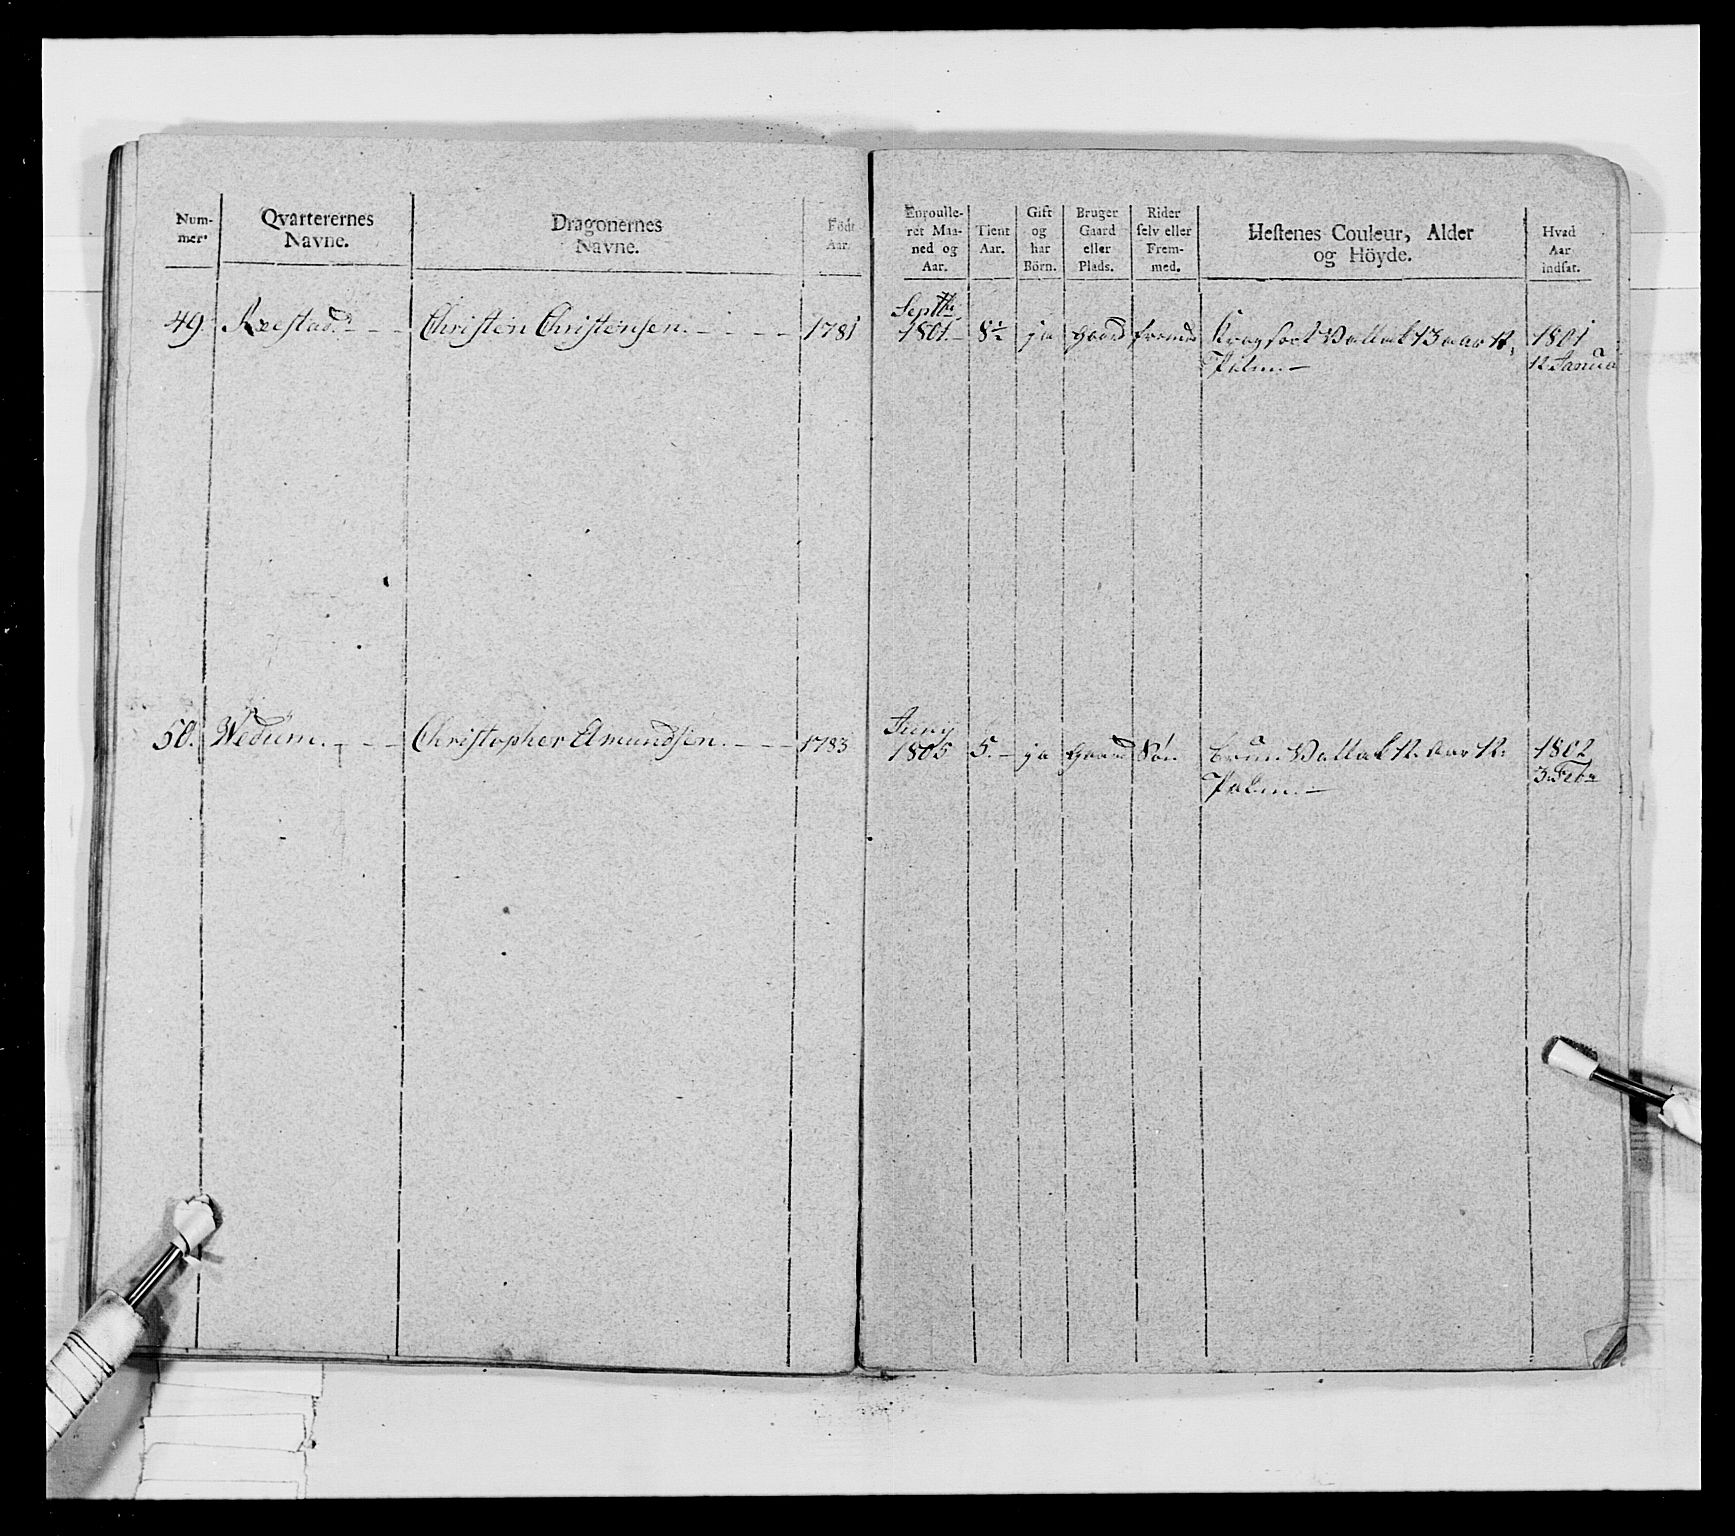 Num-
mer.
Qvarterernes
Navne.
Dragonernes
Navne.
Födt
Aar.
Enroulle-
ret Maa-
ned og
Aar.
Tient
Aar.
Gift
og
har
Börn.
Bruger
Gaard
eller
Plads.
Rider
selv eller
Frem-
med.
Hestenes Couleur, Alder
og Höyde.
Hvad
Aar
indsat.
49. Christen Christensen. 1781
Septbr
1801. 8½ ja Gaard fremed Vallak 13 aar 12 1801
Palm. 12 Janua
50. Wedum. Christopher Amundsen. 1783
Juny
1805 5. ja Gaard Søn brun Vallak 12 Aar 12 1802
Palm. 3 Febr